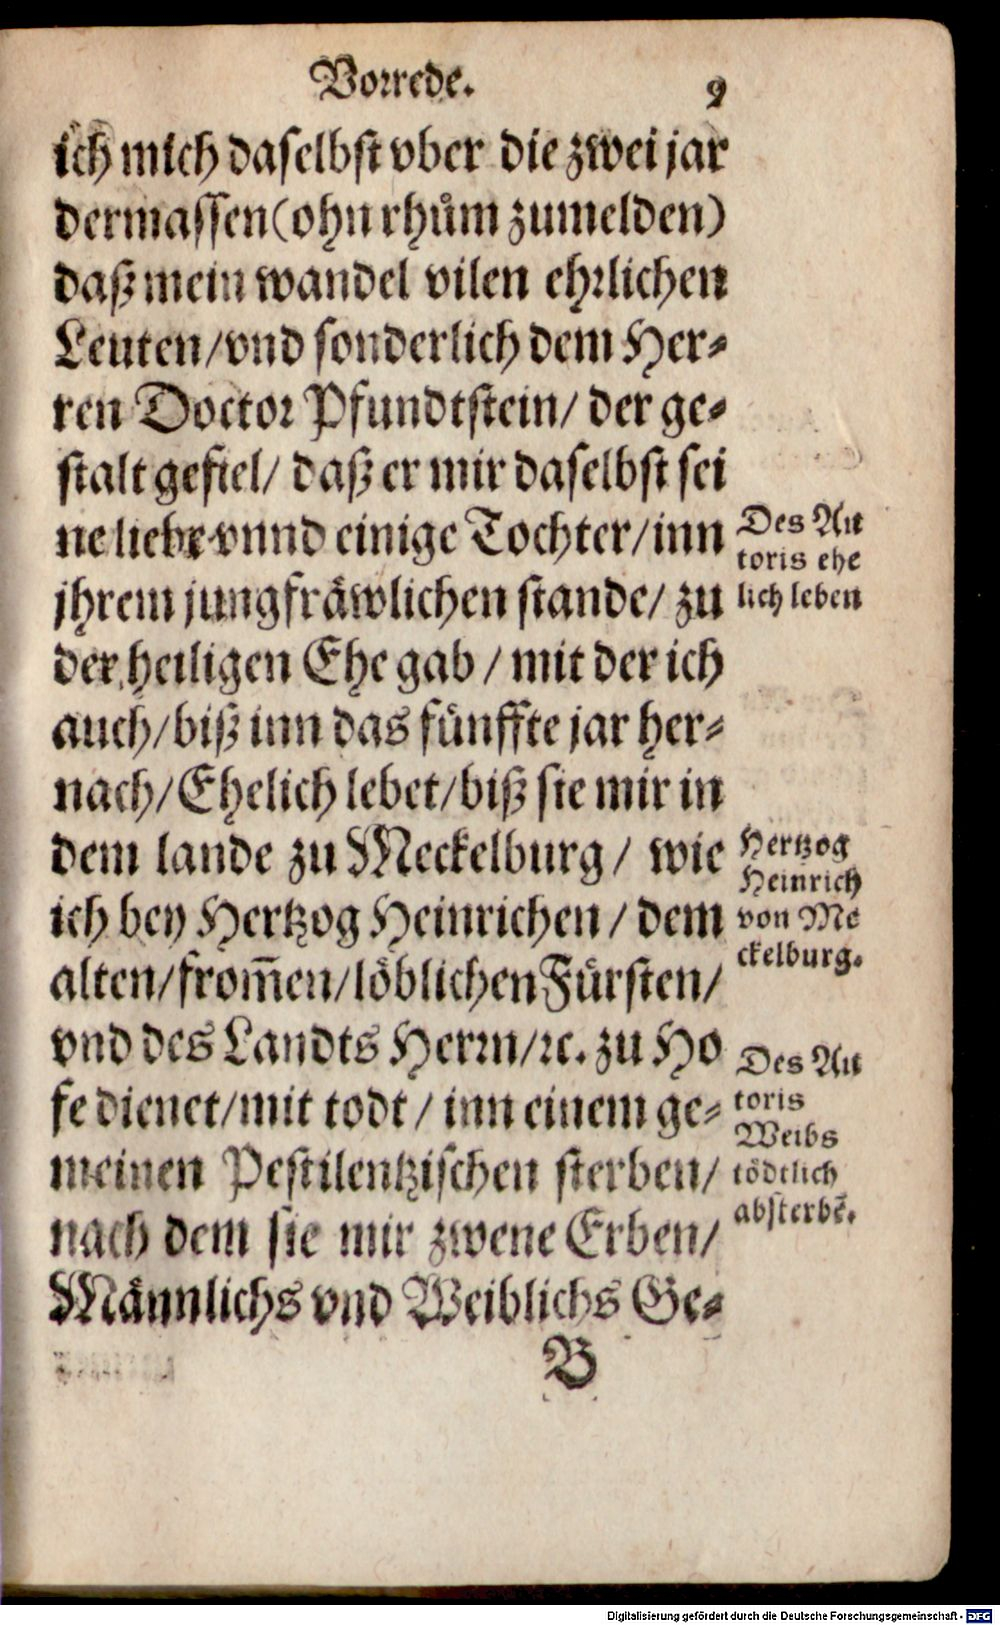 Vorrede. 9
ich mich daselbst vber die zwei jar
dermassen (ohn rhům zumelden)
daß mein wandel vilen ehrlichen
Leuten / vnd sonderlich dem Her⸗
ren Doctor Pfundtstein / der ge⸗
stalt gefiel / daß er mir daselbst sei
ne liebe vnnd einige Tochter / inn
jhrem jungfräwlichen stande / zu
der heiligen Ehe gab / mit der ich
auch / biß inn das fünffte jar her⸗
nach / Ehelich lebet / biß sie mir in
dem lande zu Meckelburg / wie
ich bey Hertzog Heinrichen / dem
alten / from̄en / löblichen Fürsten /
vnd des Landts Herrn / ꝛc. zu Ho
fe dienet / mit todt / inn einem ge⸗
meinen Pestilentzischen sterben /
nach dem sie mir zwene Erben /
Männlichs vnd Weiblichs Ge⸗
B
Des Au
toris ehe
lich leben
Hertzog
Heinrich
von Me
ckelburg.
Des Au
toris
Weibs
tödtlich
absterbē.
Digitalisierung gefördert durch die Deutsche Forschungsgemeinschaft - DFG